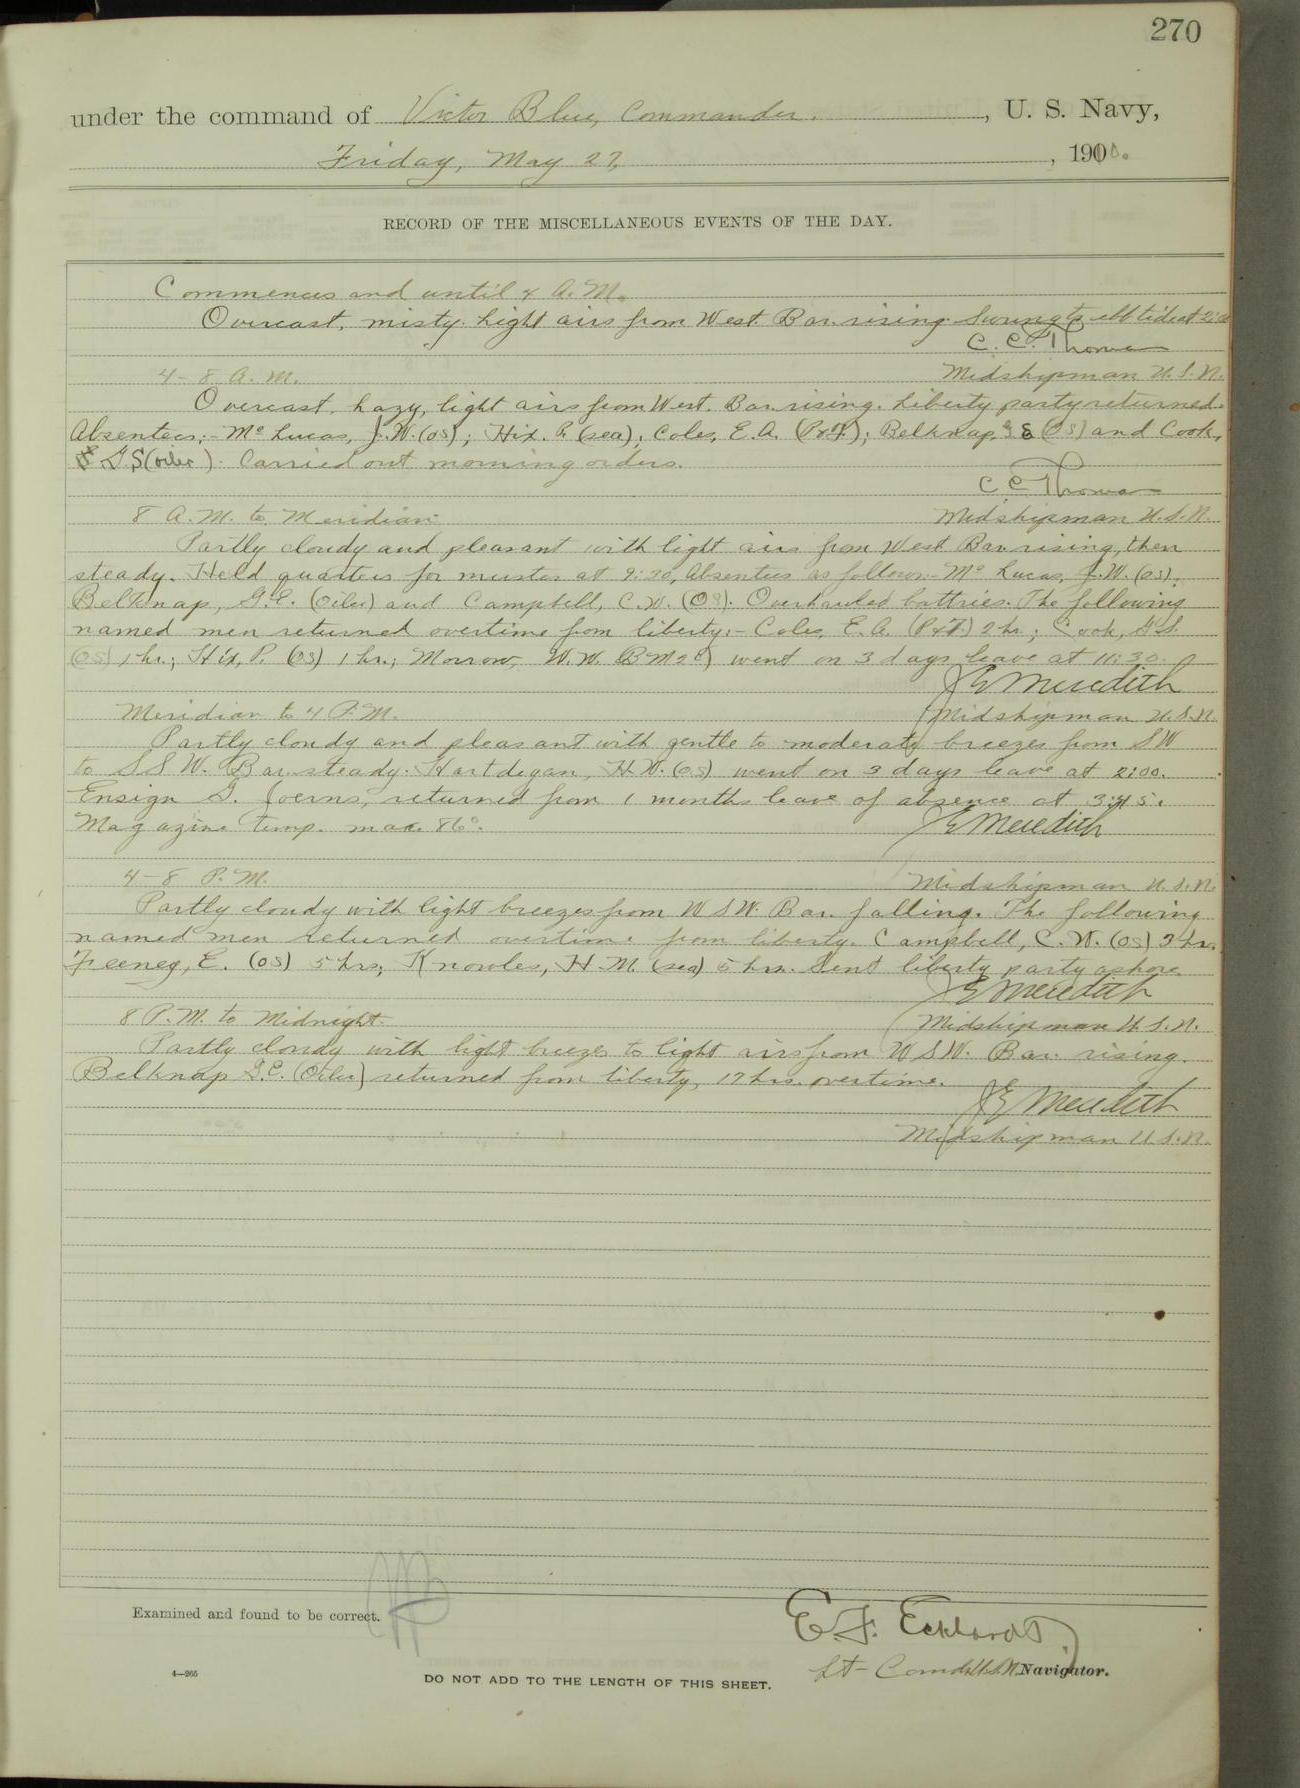 270
under the command of Victor Blue, Commander. , U. S. Navy,
Friday, May 27, , 1910.
RECORD OF THE MISCELLANEOUS EVENTS OF THE DAY.
Commences and until 4 A.M.
Overcast, misty. Light airs from West. Bar. rising. Swung to ebb tide at 2:
C. C. Thomas
4-8 A.M. Midshipman U.S.N.
Overcast, hazy, light airs from West. Bar. rising. Liberty party returned.
Absentees:- Mc Lucas, J.W. (OS); Hix. P. (sea); Coles, E.A. (P&F); Belknap, G E (OS) and Cook,
G.S (oiler). Carried out morning orders.
C C Thomas
8 A.M. to Meridian Midshipman U.S.N.
Partly cloudy and pleasant with light airs from West Bar. rising, then
steady. Held quarters for muster at 9:30, Absentees as follow:- Mc Lucas, J.W. (OS),
Belknap, G.E. (Oiler) and Campbell, C.W. (OS). Overhauled battries. The following
named men returned overtime from liberty:- Coles, E.A. (P&F.) 2 hr.; Cook, G.S.
(OS) 1 hr.; Hix, P. (OS) 1 hr.; Morrow, W.W. (BM2c) went on 3 days leave at 11:30.
J E Meredith
Meridian to 4 P.M. Midshipman U.S.N.
Partly cloudy and pleasant with gentle to moderate breezes from SW
to SSW. Bar. steady. Hartdegan, H.W. (OS) went on 3 days leave at 2:00.
Ensign G. Joerns, returned from 1 months leave of absence at 3:45.
Magazine temp. max. 86°. J E Meredith
4-8 P.M. Midshipman U.S.N.
Partly cloudy with light breezes from WSW. Bar. falling. The following
named men returned overtime from liberty. Campbell, C.W. (OS) 9 hr.
Feeney, E. (OS) 5 hrs, Knowles, H.M. (sea) 5 hrs. Sent liberty party ashore.
J E Meredith
8 P.M. to Midnight. Midshipman U.S.N.
Partly cloudy with light breezes to light airs from WSW. Bar. rising.
Belknap G.E. (Oiler) returned from liberty, 17 hrs. overtime.
J E Meredith
Midshipman U.S.N.
Examined and found to be correct.
E. F. Eckhardt
Lt-Comdr. U.S.N. Navigator.
4—265
DO NOT ADD TO THE LENGTH OF THIS SHEET.